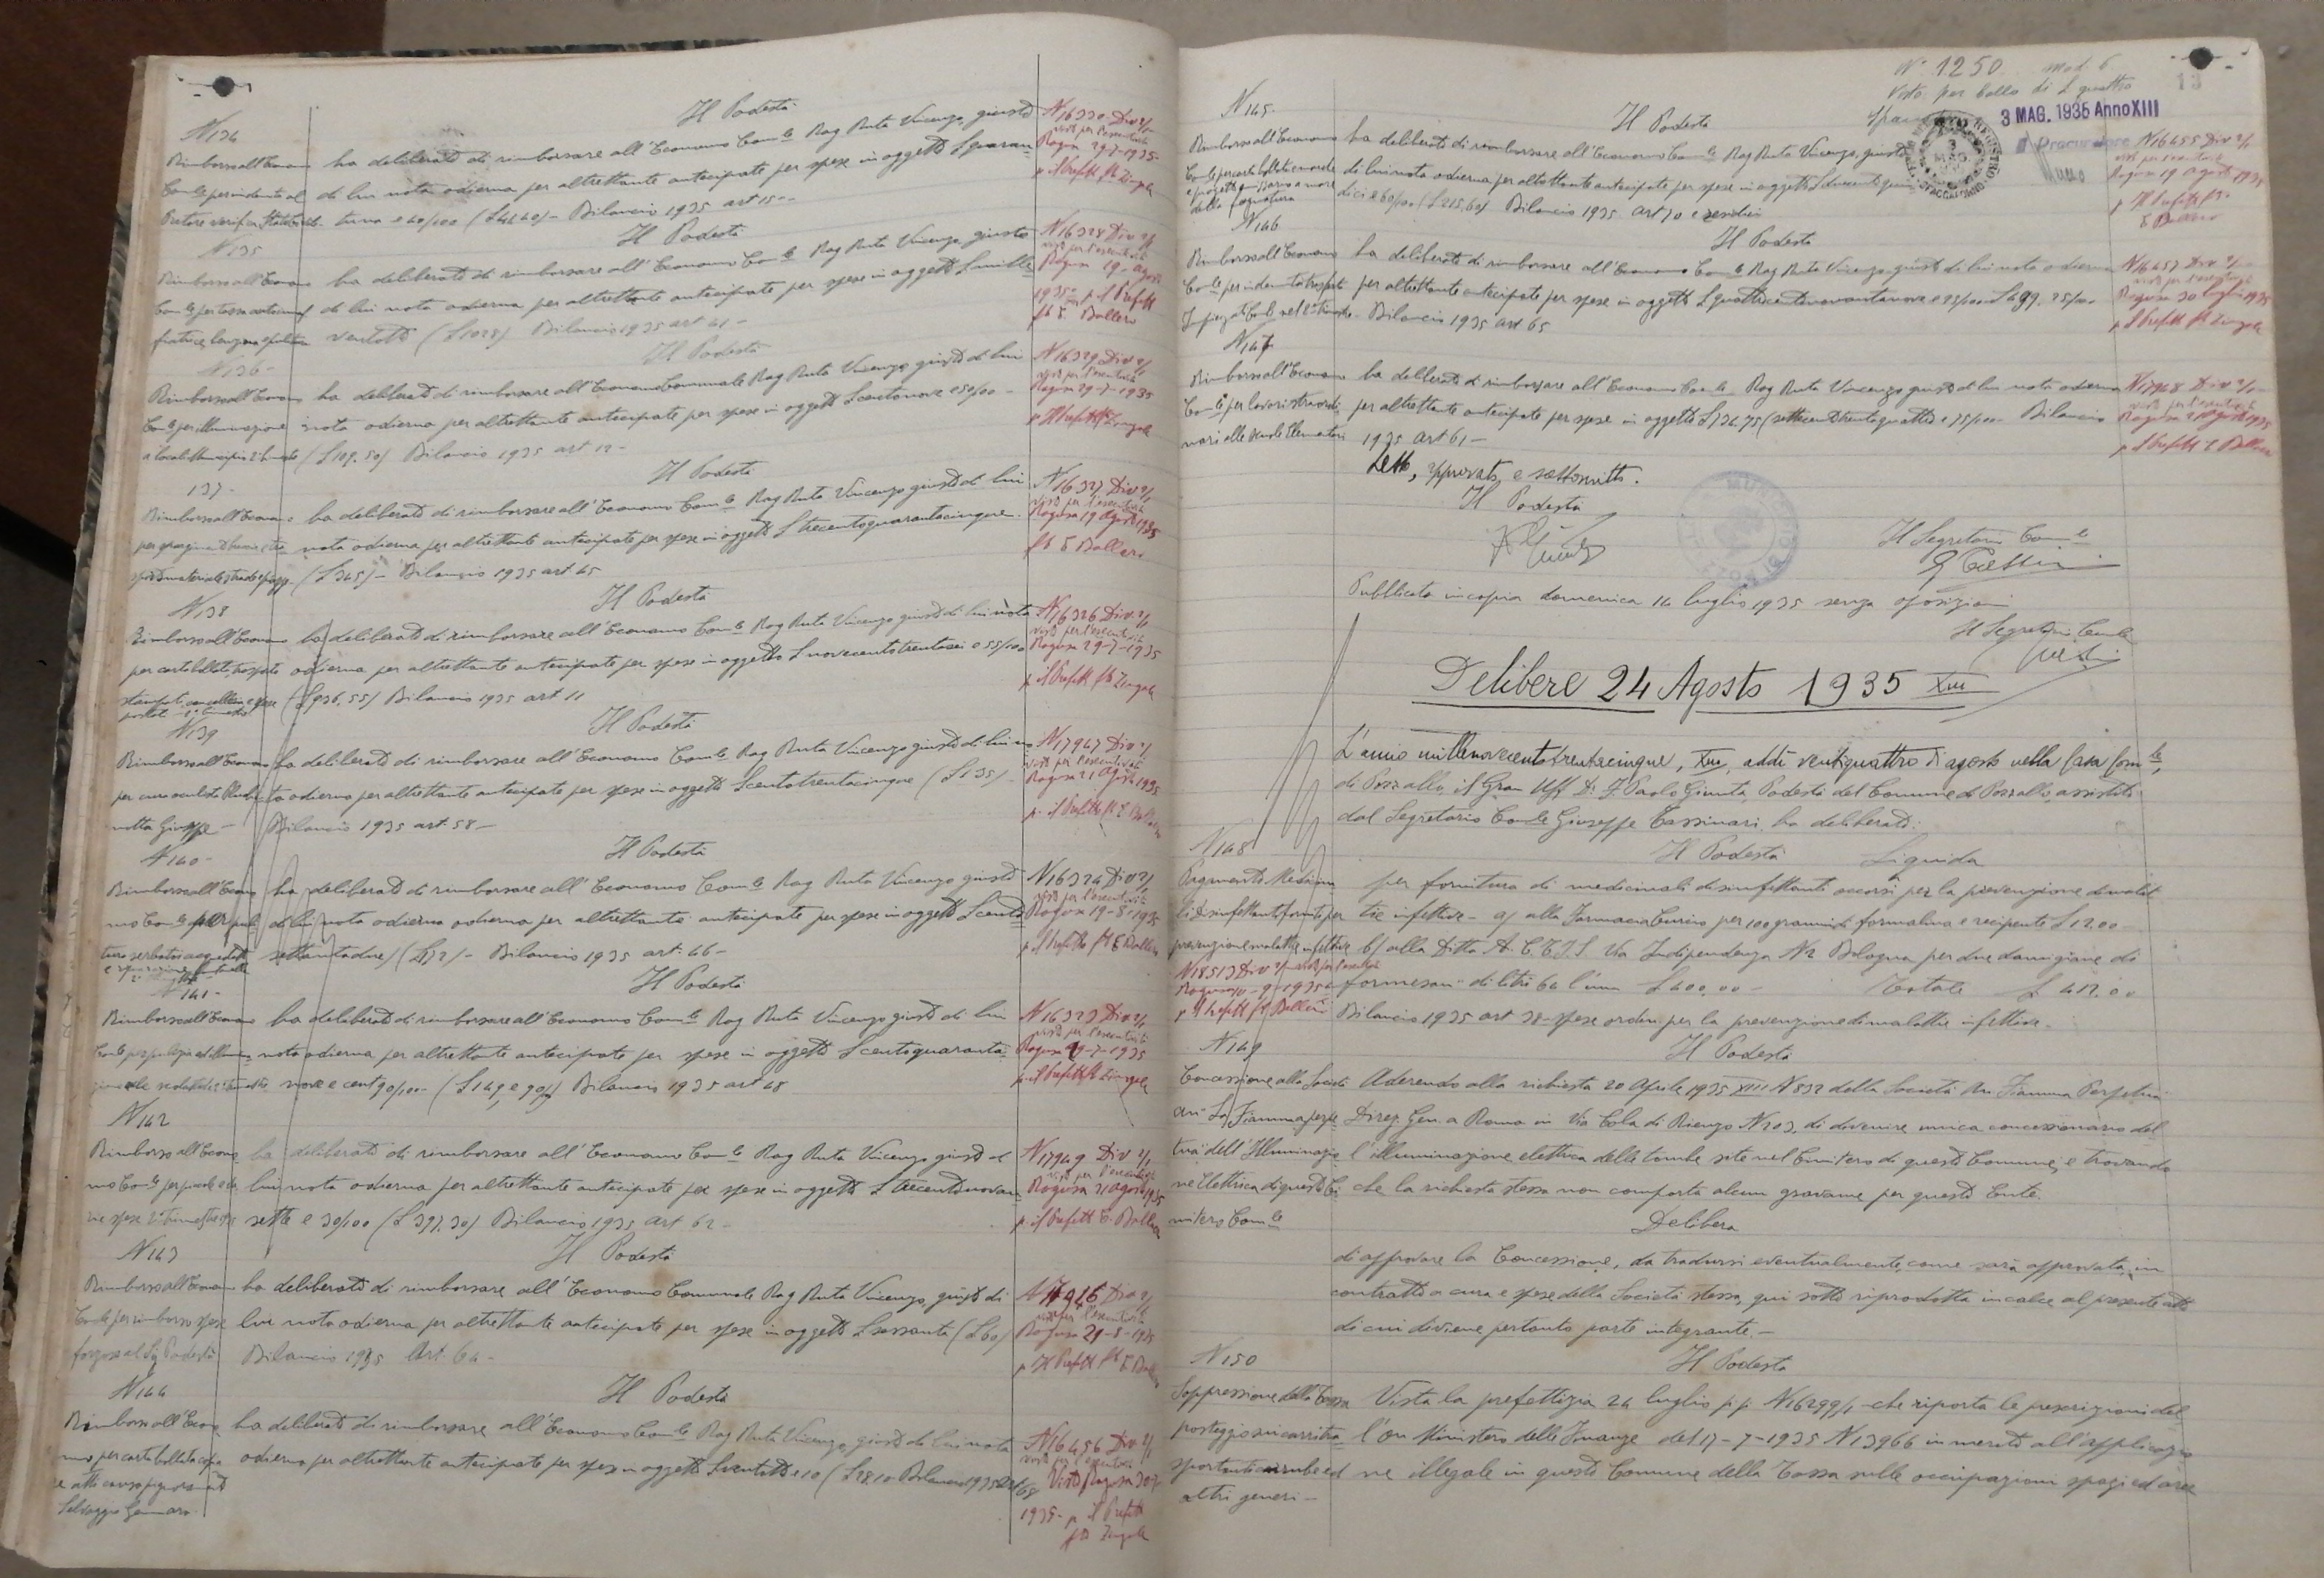 N 134
Il Podestà
Rimborso all'Econom
ha deliberato di rimborsare all'Economo Com.le Rag Ruta Vincenzo, giusta
di lui nota odierna per altrettante anticipate per spese in oggetto L quaran
tuna e 40/100 (L 41.40) - Bilancio 1935 art 15 -
N 16330 Div 2/1
visto per l'esecutività
Ragusa 29-7-1935-
p il Prefetto f.to Zingale
N 135
Il Podestà
Rimborso all'Econom
ha deliberato di rimborsare all'Economo Com.le Rag Ruta Vincenzo, giusta
di lui nota odierna per altrettante anticipate per spese in oggetto L mille
ventotto (L 1028) Bilancio 1935 art 41 -
N 16328 Div 2/1
visto per l'esecutività
Ragusa 19 agosto
1935 - p il Prefetto
f.to E. Ballero
N 136 -
Il Podestà
Rimborso all'Econom
ha deliberato di rimborsare all'Economo Comunale Rag Ruta Vincenzo giusta di lui
Com.le per illuminazione
nota odierna per altrettante anticipate per spese in oggetto L centonove e 50/00 -
(L 109.50) Bilancio 1935 art 12 -
N 16329 Div 2/1
visto per l'esecutività
Ragusa 29-7-1935
p Il Prefetto f.to Zingale
137 -
Il Podestà
Rimborso all'Econom
ha deliberato di rimborsare all'Economo Com.le Rag Ruta Vincenzo giusta di lui
nota odierna per altrettante anticipate per spese in oggetto L trecentoquarantacinque -
(L 345) - Bilancio 1935 art 45
N 16327 Div 2/1
visto per l'esecutività
Ragusa 19 agosto 1935
f.to E Ballero
N 138
Il Podestà
Rimborso all'Econom
ha deliberato di rimborsare all'Economo Com.le Rag Ruta Vincenzo giusta di lui nota
per carta bollata, trasporto
odierna per altrettante anticipate per spese in oggetto L novecentotrentasei e 55/100
stampati, cancelleria e spese
postali
(L 936,55) Bilancio 1935 art 11
N 16326 Div 2/1
visto per l'esecutività
Ragusa 29-7-1935
p il Prefetto f.to Zingale
N 139
Il Podestà
Rimborso all'Econom
ha deliberato di rimborsare all'Economo Com.le Rag Ruta Vincenzo giusta di lui no
ta odierna per altrettante anticipate per spese in oggetto L centotrentacinque (L 135) -
Bilancio 1935 art. 58 -
N 17947 Div 2/1
visto per l'esecutività
Ragusa 21 Agosto 1935
p. il Prefetto f.to E Ballero
N 140 -
Il Podestà
Rimborso all'Econo
ha deliberato di rimborsare all'Economo Com.le Rag Ruta Vincenzo giusta
di lui nota odierna odierna per altrettante anticipate per spese in oggetto L cento
settantadue) (L 172) - Bilancio 1935 art. 46 -
N 16324 Div 2/1
visto per l'esecutività
Ragusa 19-8-1935
p il Prefetto f.to E Ballero
N 141 -
Il Podestà
Rimborso all'Econom
ha deliberato di rimborsare all'Economo Com.le Rag Ruta Vincenzo giusta di lui
nota odierna per altrettante anticipate per spese in oggetto L centoquaranta
nove e cent 90/100 - (L 149,90) Bilancio 1935 art 48
N 16323 Div 2/1
visto per l'esecutività
Ragusa 29-7-1935
p il Prefetto f.to Zingale
N 142
Rimborso all'Econo
ha deliberato di rimborsare all'Economo Com.le Rag Ruta Vincenzo giusta di
lui nota odierna per altrettante anticipate per spese in oggetto L trecentonovan
sette e 30/100 (L 397,30) Bilancio 1935 art 62 -
N 17949 Div 2/1
visto per l'esecutività
Ragusa 21 agosto 1935
p. il Prefetto E. Ballero
N 143
Il Podestà
Rimborso all'Econom
ha deliberato di rimborsare all'Economo Comunale Rag Ruta Vincenzo, giusta di
Com.le per rimborso spese
lui nota odierna per altrettante anticipate per spese in oggetto L sessanta (L 60)
Bilancio 1935 Art. 64 -
visto per l'esecutività
Ragusa 29-8-1935
p Il Prefetto f.to E. Ballero
N 144
Il Podestà
Rimborso all'Econo
ha deliberato di rimborsare all'Economo Com.le Rag Ruta Vincenzo, giusta di lui nota
odierna per altrettante anticipate per spese in oggetto L ventotto e 10 (L 28.10 Bilancio 1935 art 68
Selvaggio Gennaro -
N 16456 Div 2/1
1935 - p il Prefetto
f.to Zingale
N° 1250 mod. 6
Visto per bollo di L quattro
13
3 MAG. 1935 Anno XIII
Il Procuratore
N 145 -
Il Podestà
Rimborso all'Economo
ha deliberato di rimborsare all'Economo Com.le Rag Ruta Vincenzo, giusta
di lui nota odierna per altrettante anticipate per spese in oggetto L duecentoquin
dici e 60/00 (L 215,60) Bilancio 1935 art 70 e residui
della fognatura
N 16455 Div 2/1
visto per l'esecutività
Ragusa 19 agosto 1935
p Il Prefetto f.to
E Ballero
N 146
Il Podestà
Rimborso all'Economo
ha deliberato di rimborsare all'Economo Com.le Rag Ruta Vincenzo giusta di lui nota odierna
Com.le per indennità trasferte
per altrettante anticipate per spese in oggetto L quattrocentonovantanove e 25/100 L 499.25/00
Bilancio 1935 art 65
N 16457 Div 2/1
visto per l'esecutività
Ragusa 30 luglio 1935
p il Prefetto f.to Zingale
N 147
Rimborso all'Econom
ha deliberato di rimborsare all'Economo Com.le Rag Ruta Vincenzo giusta di lui nota odierna
Com.le per lavori straordi
per altrettante anticipate per spese in oggetto L 734.75 (settecentotrentaquattro e 75/100 - Bilancio
nari alle scuole Elementari
1935 art 61 -
N 17948 Div 2/1
visto per l'esecutività
Ragusa 21 Agosto 1935
p il Prefetto E Ballero
Letto, approvato e sottoscritto.
Il Podestà
Il Segretario Com.le
Pubblicata in copia domenica 14 luglio 1935 senza opposizioni
Il Segretario Com.le
Delibere 24 Agosto 1935 XIII
L'anno millenovecentotrentacinque, XIII, addì ventiquattro di agosto nella Casa Com.le,
di Pozzallo, il Gran Uff. D. F. Paolo Giunta, Podestà del Comune di Pozzallo, assistito
dal Segretario Com.le Giuseppe Cassinari, ha deliberato:
N 148
Il Podestà Liquida
Pagamento Medicina
per fornitura di medicinali disinfettanti occorsi per la prevenzione di malat
li disinfettanti forniti per
tie infettive - a) alla Farmacia Curcio per 100 grammi di formalina e recipiente L 12.00
prevenzione malattie infettive
b) alla Ditta A. C. E. I. S. Via Indipendenza N 2 Bologna per due damigiane di
N 18513 Div 2/1 visto per l'esecutività
Ragusa 10-9-1935
formesan di litri 64 l'una L 400.00 - Totale L 412.00
p Il Prefetto f.to Ballero
Bilancio 1935 art 38 - spese ordin per la prevenzione di malattie infettive.
N 149
Il Podestà
Concessione alla Società
Aderendo alla richiesta 20 Aprile 1935 XIII N 832 della Società An Fiamma Perpetua
an" La Fiamma perpe
Direz. Gen. a Roma in Via Cola di Rienzo N 203, di divenire unica concessionaria del
tua" dell'Illuminazio
l'illuminazione elettrica delle tombe site nel Cimitero di questo Comune, e trovando
ne Elettrica di questo Ci
che la richiesta stessa non comporta alcun gravame per questo Ente.
mitero Com.le
Delibera
di approvare la Concessione, da tradursi eventualmente, come sarà approvata, in
contratto a cura e spese della Società stessa, qui sotto riprodotta in calce al presente atto
di cui diviene pertanto parte integrante. -
N 150
Il Podestà
Soppressione della Tassa
Vista la prefettizia 24 luglio p.p. N 16299/1 - che riporta le prescrizioni del
posteggio sui carri tra
l'On Ministero delle Finanze del 17-7-1935 N 13966 in merito all'applicazio
ne illegale in questo Comune della Tassa sulle occupazioni spazi ed aree
altri generi -